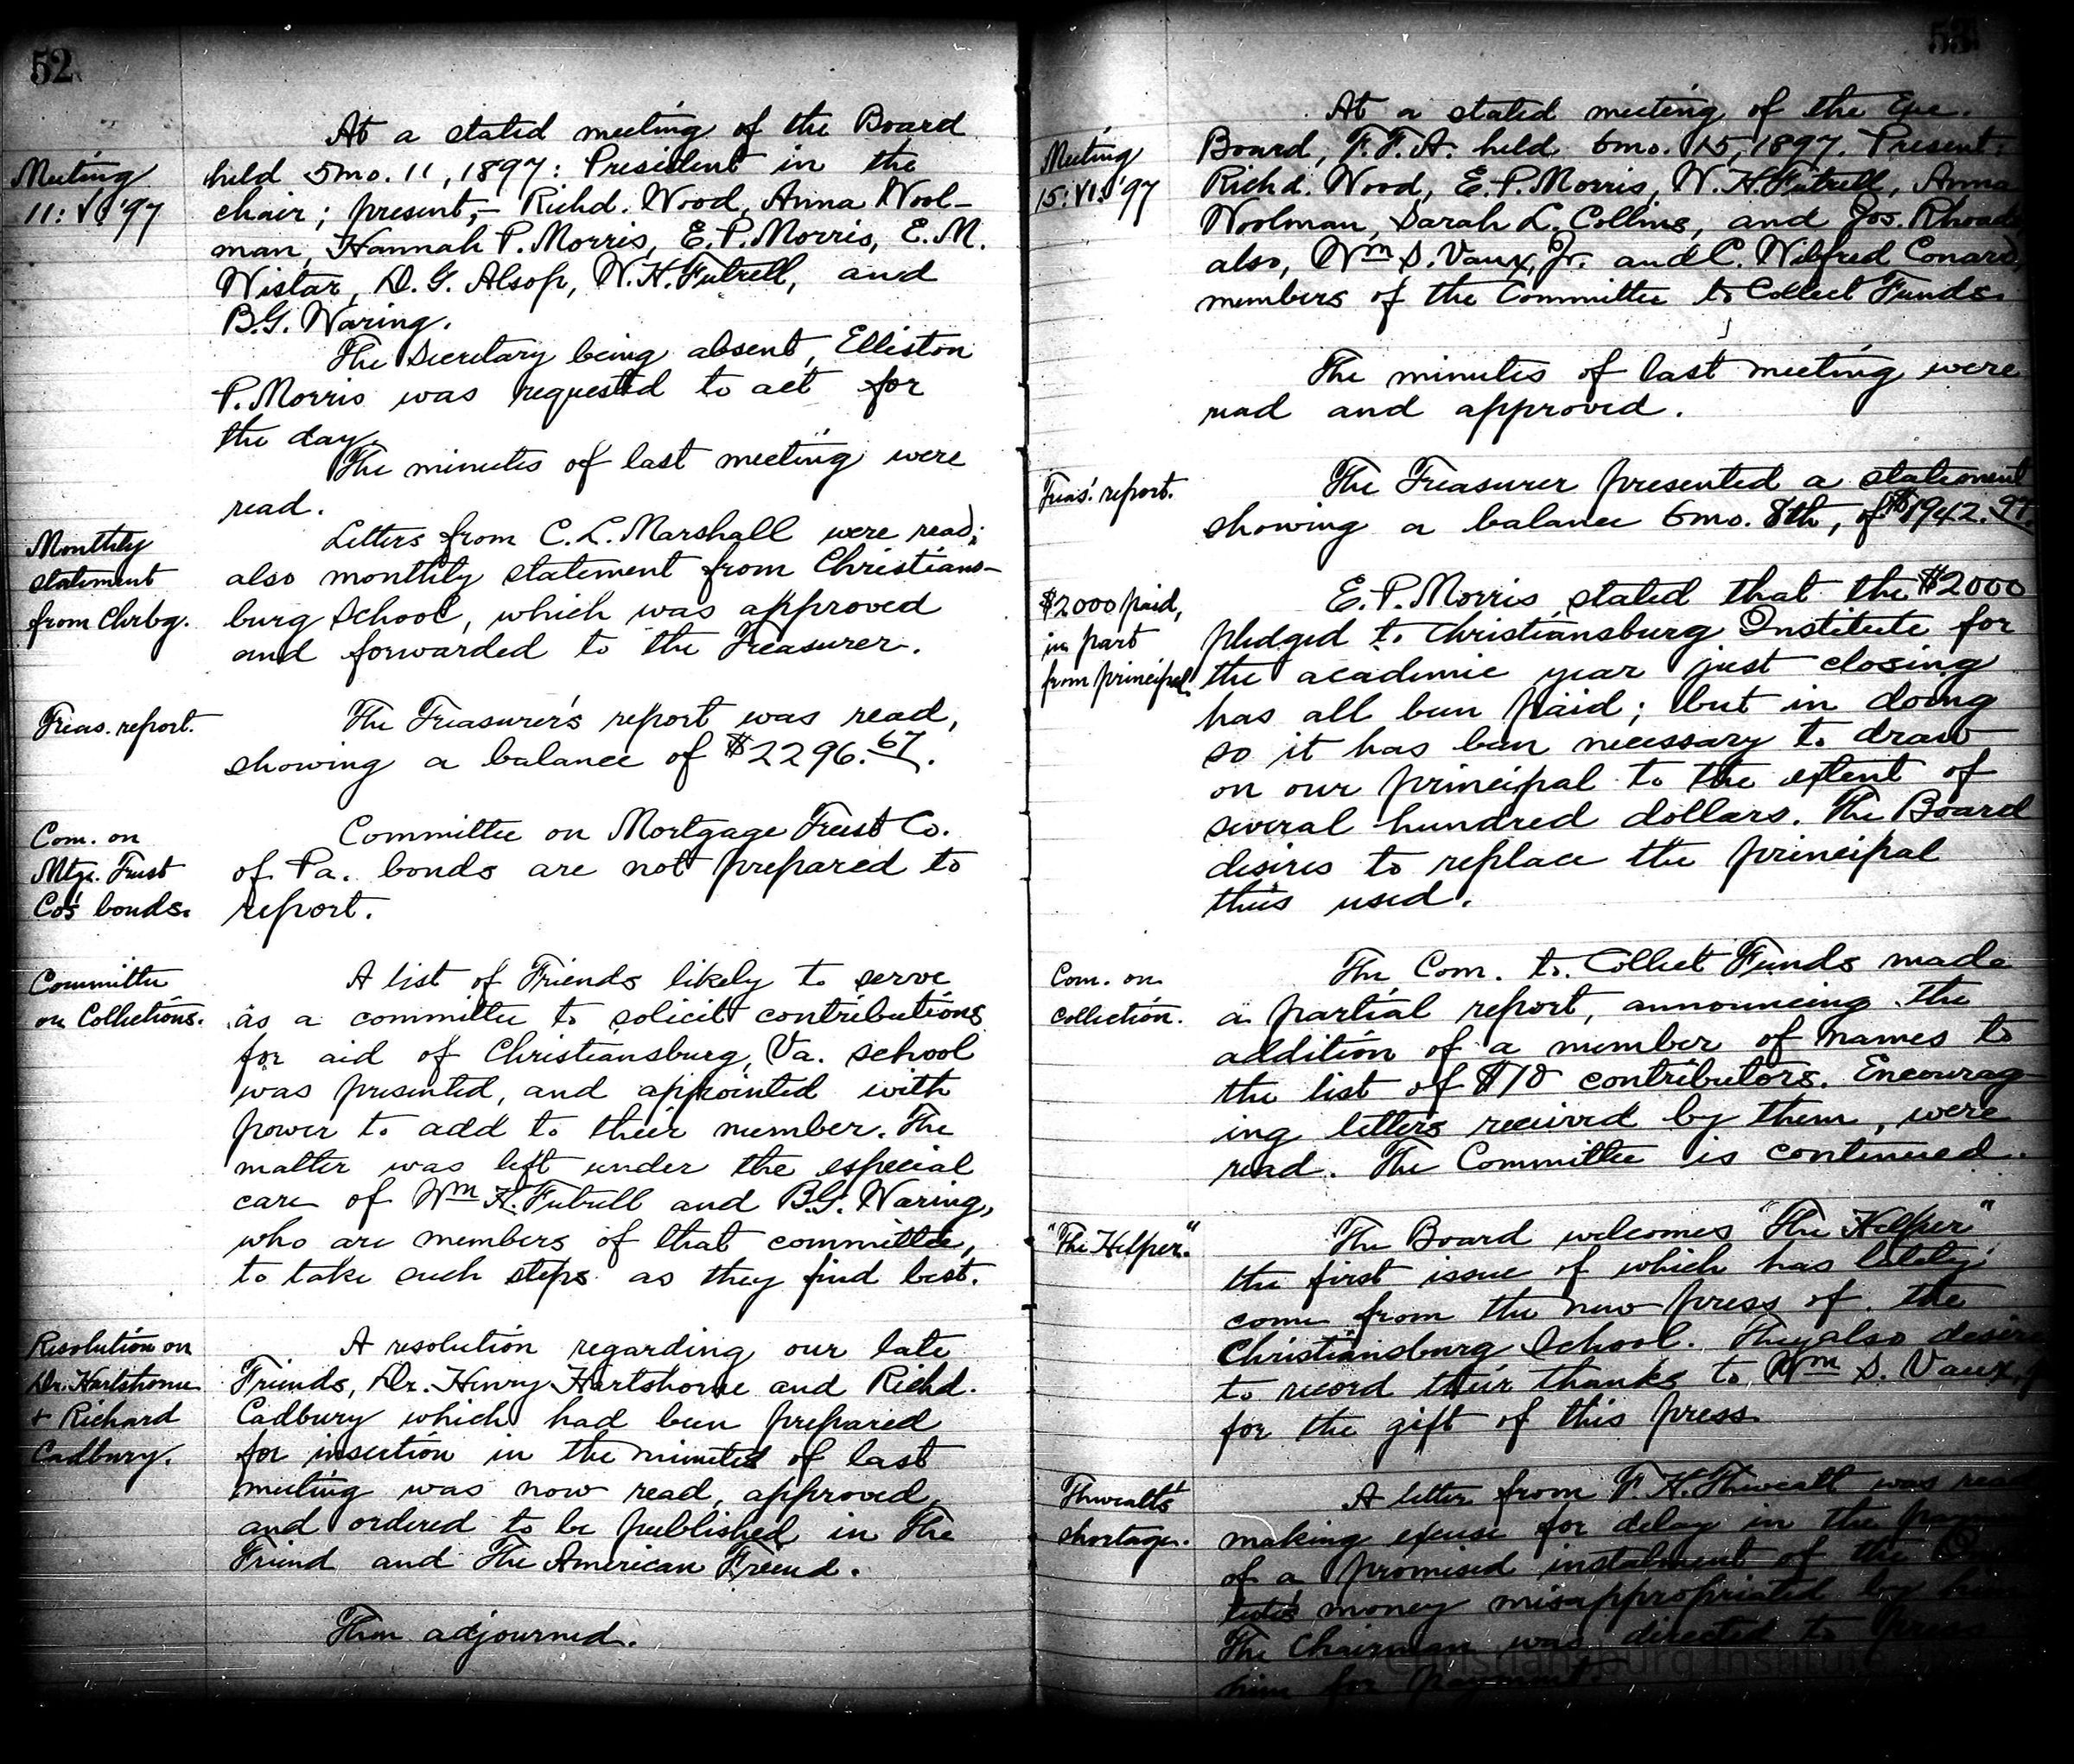 52
At a stated meeting of the Board
Meeting
held 5mo. 11, 1897: President in the
11: V '97
chair; present,- Richd. Wood, Anna Wool-
man, Hannah P. Morris, E.P. Morris, E.M.
Wistar, D.G. Alsop, W.H. Futrell, and
B.G. Waring.
The Secretary being absent, Elliston
P. Morris was requested to act for
the day.
The minutes of last meeting were
read.
Letters from C.L. Marshall were read;
Monthly
statement
from Chrbg.
also monthly statement from Christians-
burg School, which was approved
and forwarded to the Treasurer.
Treas. report.
The Treasurer's report was read,
showing a balance of $2296.67.
Com. on
Mtge. Trust
Co's bonds.
Committee on Mortgage Trust Co.
of Pa. bonds are not prepared to
report.
Committee
on Collections.
A list of Friends likely to serve
as a committee to solicit contributions
for aid of Christiansburg, Va. school
was presented, and appointed with
power to add to their number. The
matter was left under the especial
care of Wm H. Futrell and B.G. Waring,
who are members of that committee,
to take such steps as they find best.
Resolution on
Dr. Hartshorne
& Richard
Cadbury.
A resolution regarding our late
Friends, Dr. Henry Hartshorne and Richd.
Cadbury which had been prepared
for insertion in the minutes of last
meeting was now read, approved,
and ordered to be published in The
Friend and The American Friend.
Then adjourned.
53
At a stated meeting of the Exe.
Meeting
15: VI. '97
Board, F.F.A. held 6mo. 15, 1897. Present:
Richd. Wood, E.P. Morris, W.H. Futrell, Anna
Woolman, Sarah L. Collins, and Jos. Rhoads,
also, Wm S. Vaux, Jr. and C. Wilfred Conard,
members of the Committee to Collect Funds.
The minutes of last meeting were
read and approved.
Treas'. report.
The Treasurer presented a statement
showing a balance 6mo. 8th, of $1942.97.
$2000 paid,
in part
from principal.
E.P. Morris stated that the $2000
pledged to Christiansburg Institute for
the academic year just closing
has all been paid; but in doing
so it has been necessary to draw
on our principal to the extent of
several hundred dollars. The Board
desires to replace the principal
thus used.
Com. on
Collection.
The Com. to Collect Funds made
a partial report, announcing the
addition of a number of names to
the list of $10 contributors. Encourag-
ing letters received by them, were
read. The Committee is continued.
"The Helper."
The Board welcomes "The Helper"
the first issue of which has lately
come from the new press of the
Christiansburg School. They also desire
to record their thanks to Wm S. Vaux, Jr
for the gift of this press.
Thweatt's
shortage.
A letter from F.H. Thweatt was read
making excuse for delay in the
of a promised instalment of the
tute's money misappropriated by him
The Chairman was directed to press
him for payment.
Christiansburg Institute